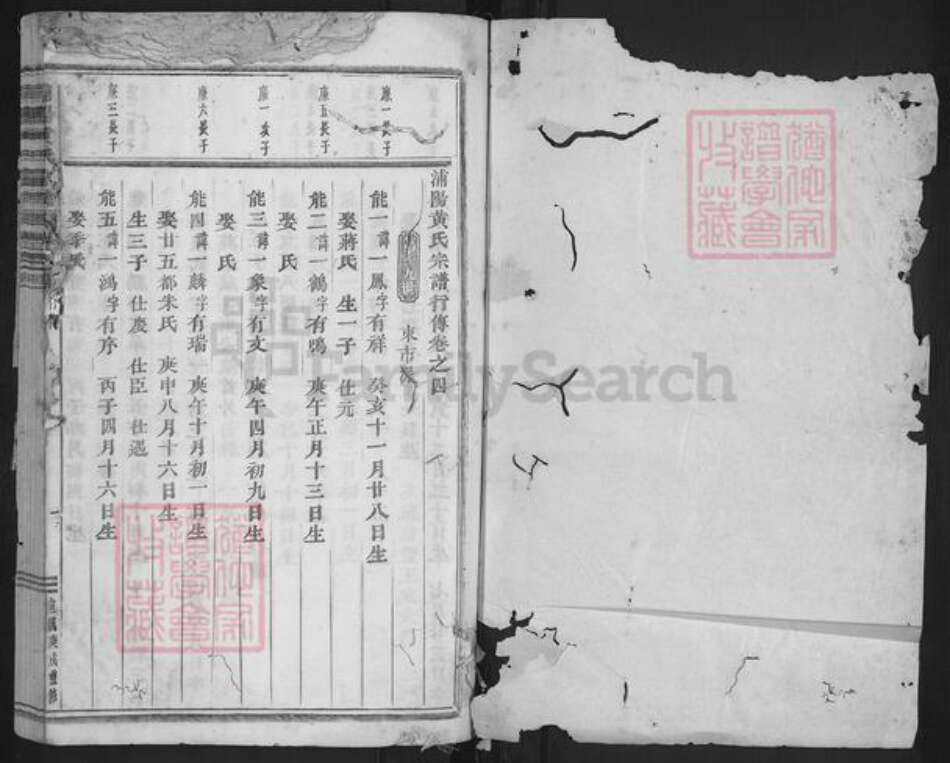 浦陽黃氏宗譜行傳卷之四
東市派
康一長子
能一諱一鳳字有祥 癸亥十一月廿八日生
娶蔣氏 生一子 仕元
康五長子
能二諱一鶴字有鳴 庚午正月十三日生
娶 氏
康一次子
能三諱一象字有文 庚午四月初九日生
娶 氏
康六長子
能四諱一麟字有瑞 庚午十月初一日生
娶廿五都朱氏 庚申八月十六日生
生三子 仕慶 仕臣 仕遇
康三長子
能五諱一鴻字有序 丙子四月十六日生
娶季氏
宣統庚戌重修
FamilySearch
譜學會
收藏
譜學會
收藏